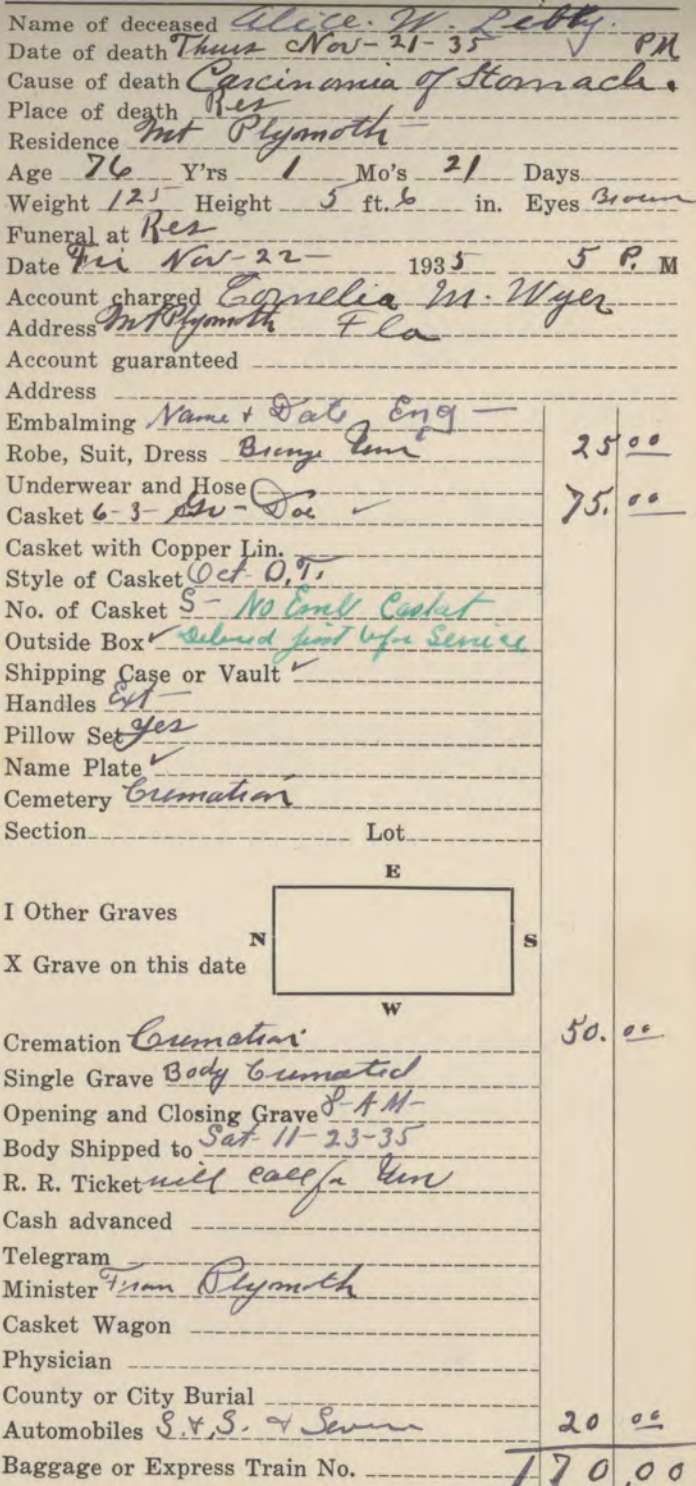 Name of deceased Alice. W. Libby.
Date of death Thurs Nov-21-35 PM
Cause of death Carcinomia of Stomach.
Place of death Res
Residence Mt Plymoth
Age 76 Y'rs 1 Mo's 21 Days
Weight 125 Height 5 ft. 6 in. Eyes Brown
Funeral at Res
Date Fri Nov-22- 1935 5 P. M
Account charged Cornelia M. Wyer
Address Mt Plymoth Fla
Account guaranteed
Address
Embalming Name + Date Eng -
Robe, Suit, Dress Bronze Urn 25 00
Underwear and Hose
Casket 6-3- Doe ✓ 75. 00
Casket with Copper Lin.
Style of Casket Oct O.T.
No. of Casket S- No Emb Casket
Outside Box ✓ just Service
Shipping Case or Vault ✓
Handles Ext -
Pillow Set yes
Name Plate ✓
Cemetery Cremation
Section Lot
E
I Other Graves
N S
X Grave on this date
W
Cremation Cremation 50. 00
Single Grave Body Cremated
Opening and Closing Grave 8-AM-
Body Shipped to Sat-11-23-35
R. R. Ticket will call for Urn
Cash advanced
Telegram
Minister From Plymoth
Casket Wagon
Physician
County or City Burial
Automobiles S.+S. + Seven 20 00
Baggage or Express Train No. 170.00